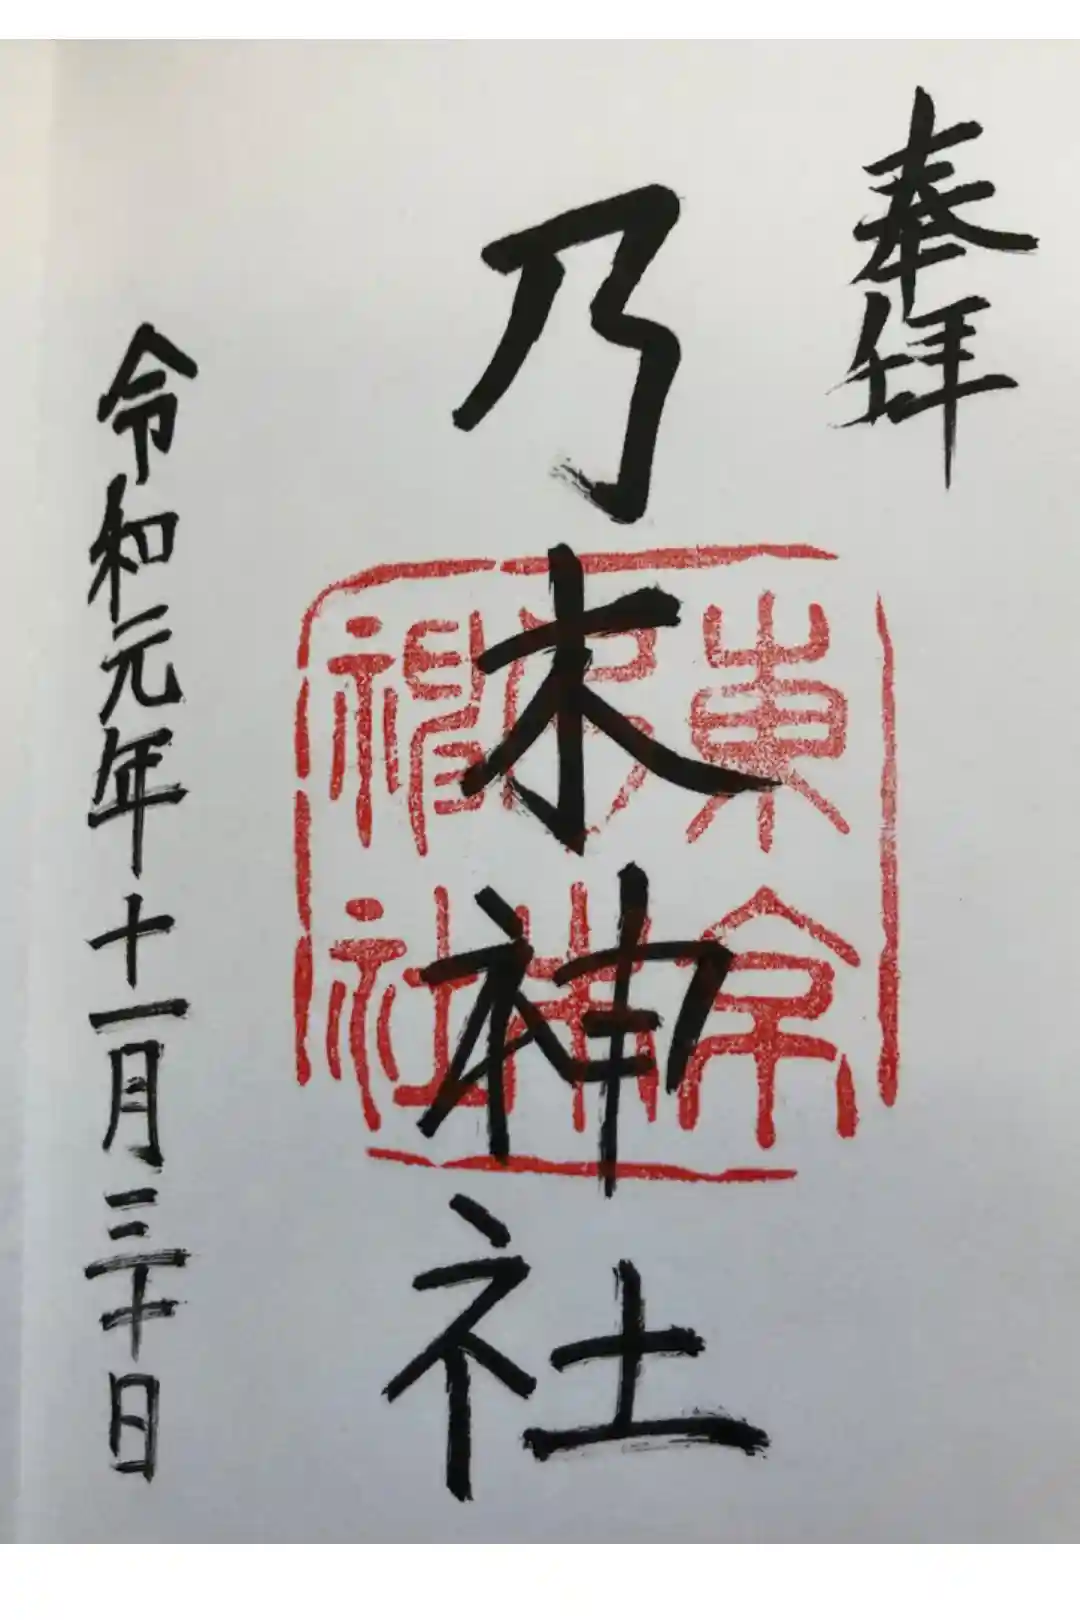 奉拝
乃木神社
令和元年十一月三十日
東
神社